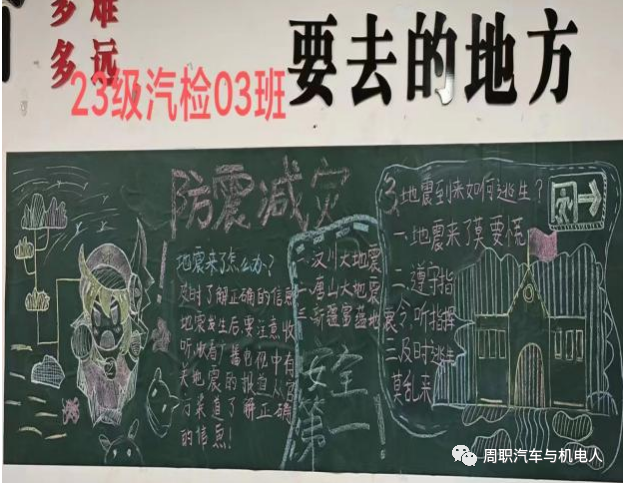 多难
多远
要去的地方
23级汽检03班
防震减灾
地震来了怎么办?
及时了解正确的信息
地震发生后,要注意收
听收看广播电视中有
关地震的报道从官
方渠道了解正确
的信息!
一、汶川大地震
二、唐山大地震
三、新疆富蕴地
安全
第一
3.地震到来如何逃生?
一、地震来了莫要慌
二、遵守指
令,听指挥
三及时逃生
莫乱来
周职汽车与机电人